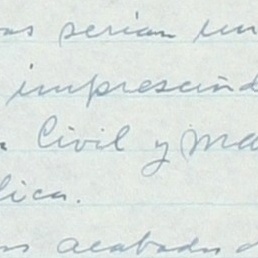 as serian un
imprescind
Civil y Me
lica.
acabado d